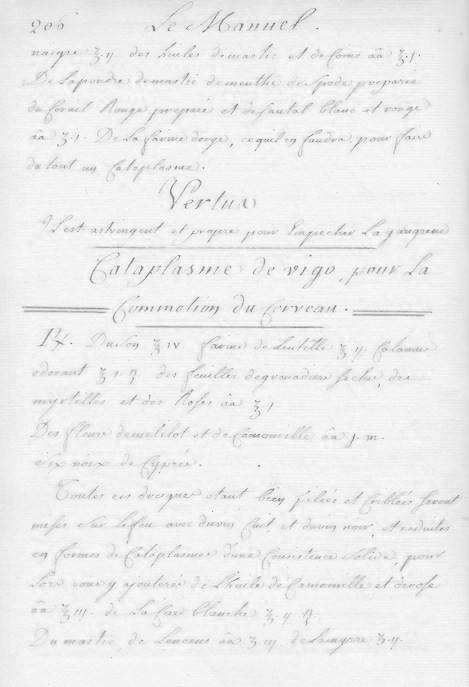 206 Le Manuel.
naigre ℥.ij des huiles demastic et de Coins āā ℥.j.
De Lapoudre demastic dementhe de Spode preparée
du Corail Rouge preparé et desantal blanc et rouge
āā ℥.j De La farine dorge, cequil en faudra pour faire
du tout un Cataplasme.
Vertus
Ilest astringent et propre pour Empecher La gangrene
Cataplasme de vigo pour La
Commotion du Cerveau.
℞. Duson ℥ iv farine de Lentille ℥.ij Calamus
odorant ℥.j.ß. des feuilles degrenadier seche, des
myrtilles et des Roses āā ℥j
Des fleurs demelilot et de Camomille āā j.m.
Six noix de Cyprés.
Toutes ces drogues etant bien pilées et Criblées seront
mises Sur Lefeu avec duvin Cuit et duvin noir, et reduites
en formes de Cataplasmes d'une Consistence Solide, pour
Lors vous y ajouterés de L'huile de Camomille et derose
āā ℥.iij. de La Cire blanche ℥.ij ß
Du mastic, de Lencens āā ℥.iij delamyrre ℥.ij.